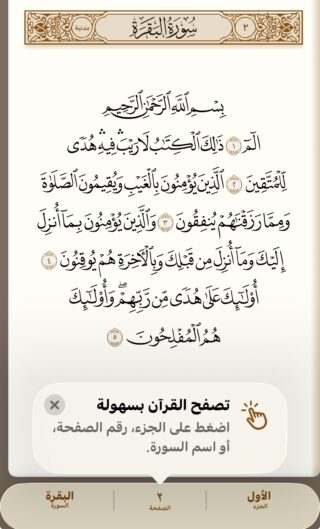 ٢ سُورَةُ البَقَرَةِ مدنية
بِسْمِ ٱللَّهِ ٱلرَّحْمَٰنِ ٱلرَّحِيمِ
الٓمٓ ١ ذَٰلِكَ ٱلْكِتَٰبُ لَا رَيْبَ ۛ فِيهِ ۛ هُدًى
لِّلْمُتَّقِينَ ٢ ٱلَّذِينَ يُؤْمِنُونَ بِٱلْغَيْبِ وَيُقِيمُونَ ٱلصَّلَوٰةَ
وَمِمَّا رَزَقْنَٰهُمْ يُنفِقُونَ ٣ وَٱلَّذِينَ يُؤْمِنُونَ بِمَآ أُنزِلَ
إِلَيْكَ وَمَآ أُنزِلَ مِن قَبْلِكَ وَبِٱلْءَاخِرَةِ هُمْ يُوقِنُونَ ٤
أُو۟لَٰٓئِكَ عَلَىٰ هُدًى مِّن رَّبِّهِمْ ۖ وَأُو۟لَٰٓئِكَ
هُمُ ٱلْمُفْلِحُونَ ٥
تصفح القرآن بسهولة
اضغط على الجزء، رقم الصفحة،
أو اسم السورة.
الأول ٢ البقرة
الجزء الصفحة السورة